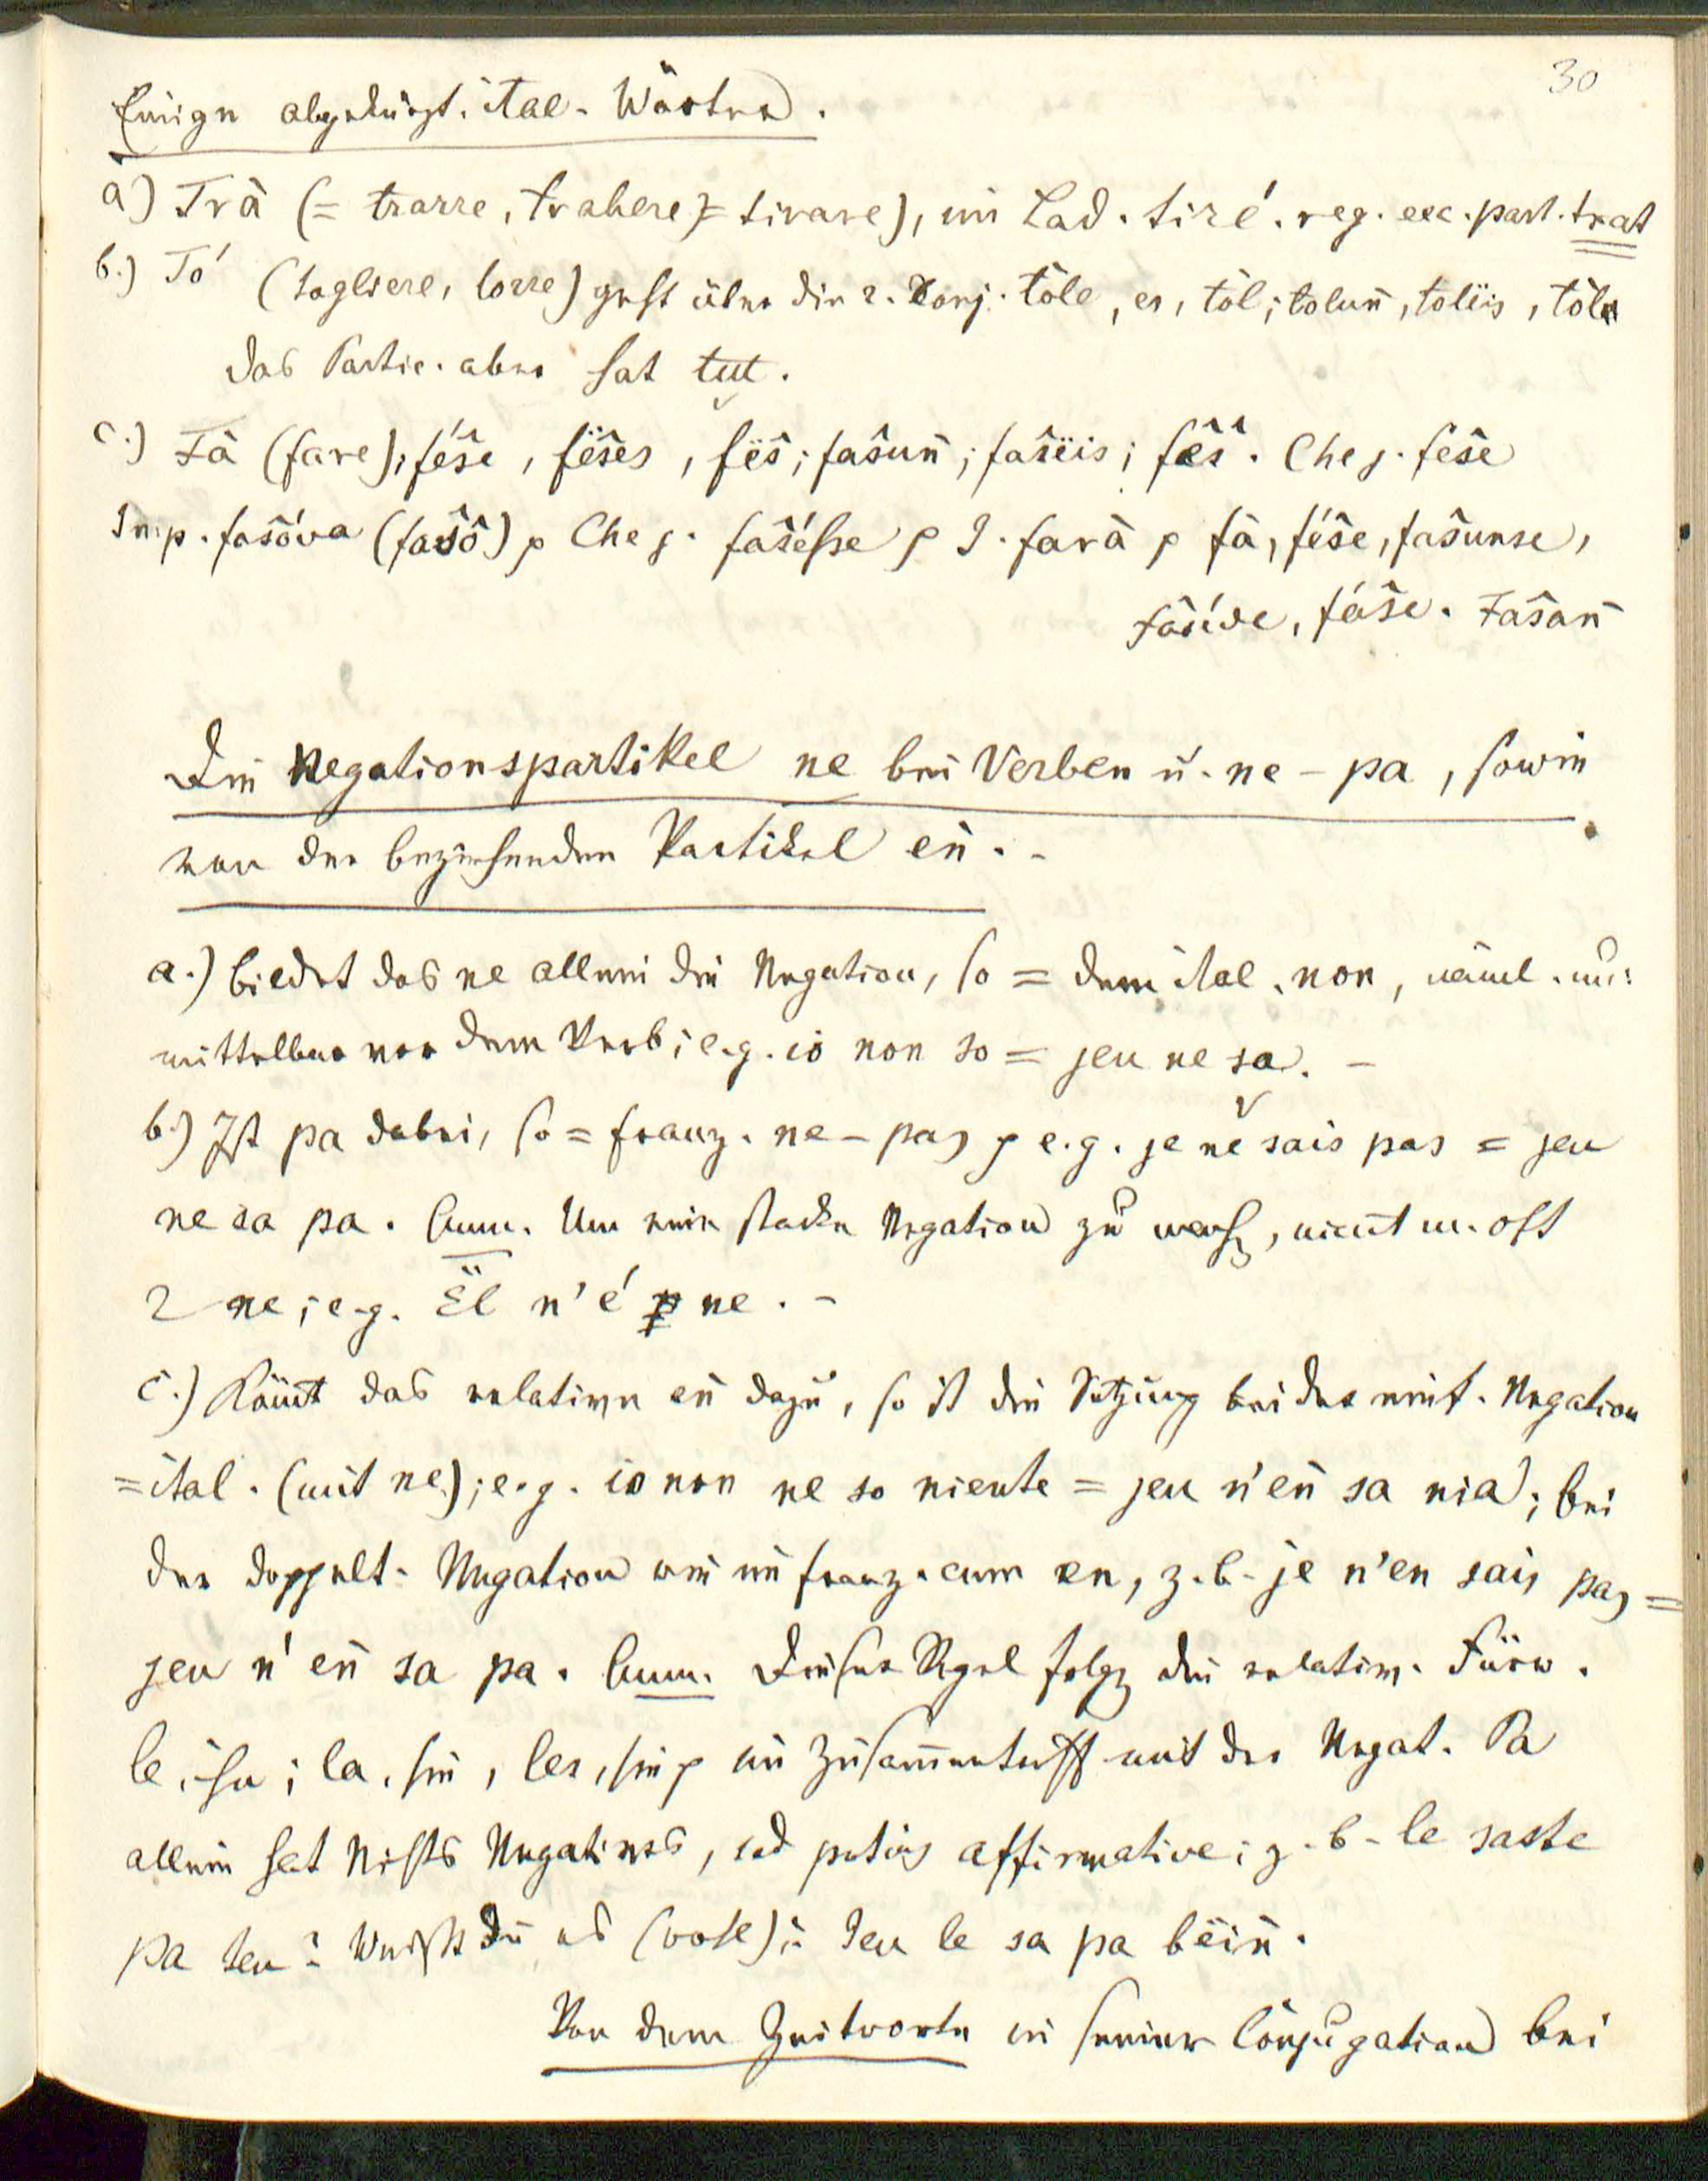 30
Einige abgekürzt. ital. Wörter.
a) Trà (= trarre, trahere = tirare), im Lad. tiré. reg. exc. part. trat
b.) Tó (togliere, torre) geht über die 2. Conj. tôle, es, tôl; tolun̄, toliis, tôle
das Partic. aber hat tut.
c.) Fà (fare), féŝe, fëŝes, fëŝ; faŝun̄; faŝëis; fëŝ. Che j. féŝe
Imp. faŝóva (faŝô) p Che j. faŝésse p I. farà p fà, féŝe, faŝunse,
faŝéde, fáŝe. Faŝan̄
Die Negationspartikel ne bei Verben u. ne - pa, sowie
von der beziehenden Partikel en̄. -
a.) bildet das ne allein die Negation, so = dem ital. non, näml. un:
mittelbar vor dem Verb; e.g. io non so = jeu ne sa. -
b.) Ist pa dabei, so = franz. ne - pas p e.g. je ne sais pas = jeu
ne sa pa. Anm. Um eine starke Negation zu, nim̄t m. oft
2 ne; e.g. Ël n'é ne. -
c.) Kom̄t das relative en̄ dazu, so ist die Setzung bei der einf. Negation
= ital. (mit ne); e.g. io non ne so niente = jeu n'en̄ sa nia; bei
der doppelt. Negation wie im franz. cum en, z. b. je n'en sais pas =
jeu n'en̄ sa pa. Anm. Dieser Regel folgen die relativ. Fürw.
le, ihn; la, sie, les, sie p im Zusam̄entreff mit der Negat. Pa
allein hat Nichts Negatives, sed potius affirmative; z. b. le saste
pa teu? Weißt Du es (wohl)? Jeu le sa pa bëin̄.
Von dem Zeitworte in seiner Conjugation bei